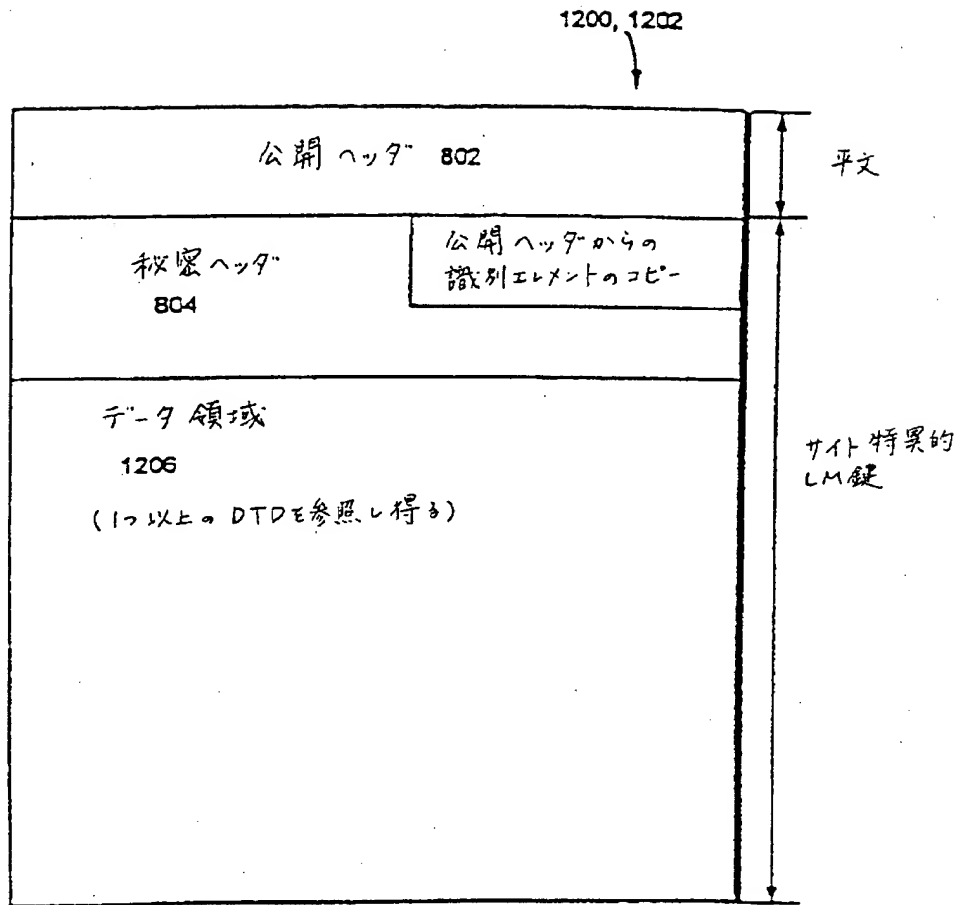 1200, 1202
公開ヘッダ 802
平文
秘密ヘッダ
804
公開ヘッダからの
識別エレメントのコピー
データ領域
1206
(1つ以上のDTDを参照し得る)
サイト特異的
LM鍵